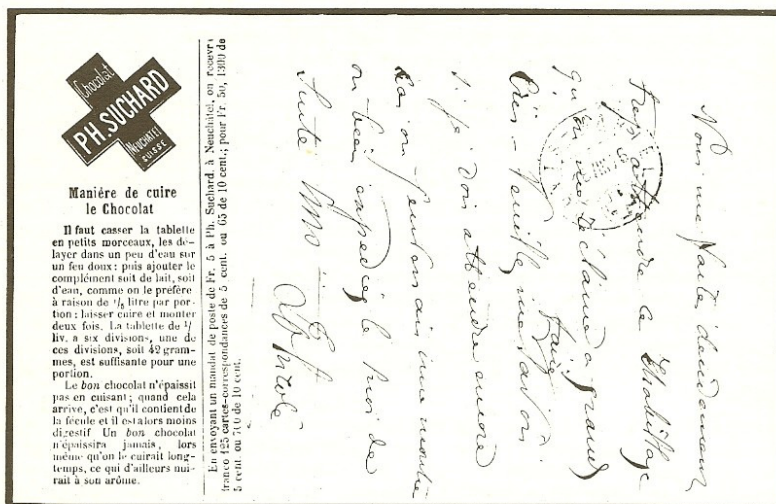 Chocolat
PH. SUCHARD
NEUCHÂTEL
SUISSE
Manière de cuire
le Chocolat
Il faut casser la tablette
en petits morceaux, les dé-
layer dans un peu d'eau sur
un feu doux; puis ajouter le
complément soit de lait, soit
d'eau, comme on le préfère
à raison de 1/6 litre par por-
tion; laisser cuire et monter
deux fois. La tablette de 1/
liv. a six divisions, une de
ces divisions, soit 42 gram-
mes, est suffisante pour une
portion.
Le bon chocolat n'épaissit
pas en cuisant; quand cela
arrive, c'est qu'il contient de
la fécule et il est alors moins
digestif Un bon chocolat
n'épaissira jamais, lors
même qu'on le cuirait long-
temps, ce qui d'ailleurs nui-
rait à son arôme.
En envoyant un mandat de poste de Fr. 5 à Ph. Suchard, à Neuchâtel, on recevra
franco 125 cartes-correspondances de 5 cent. ou 65 de 10 cent.; pour Fr. 50, 1300 de
5 cent. ou 700 de 10 cent.
Vous me faites décidement
trop attendre le
qu'on me réclame a grand
Veuillez me
si je dois attendre encore
ou
ou bien expediez le